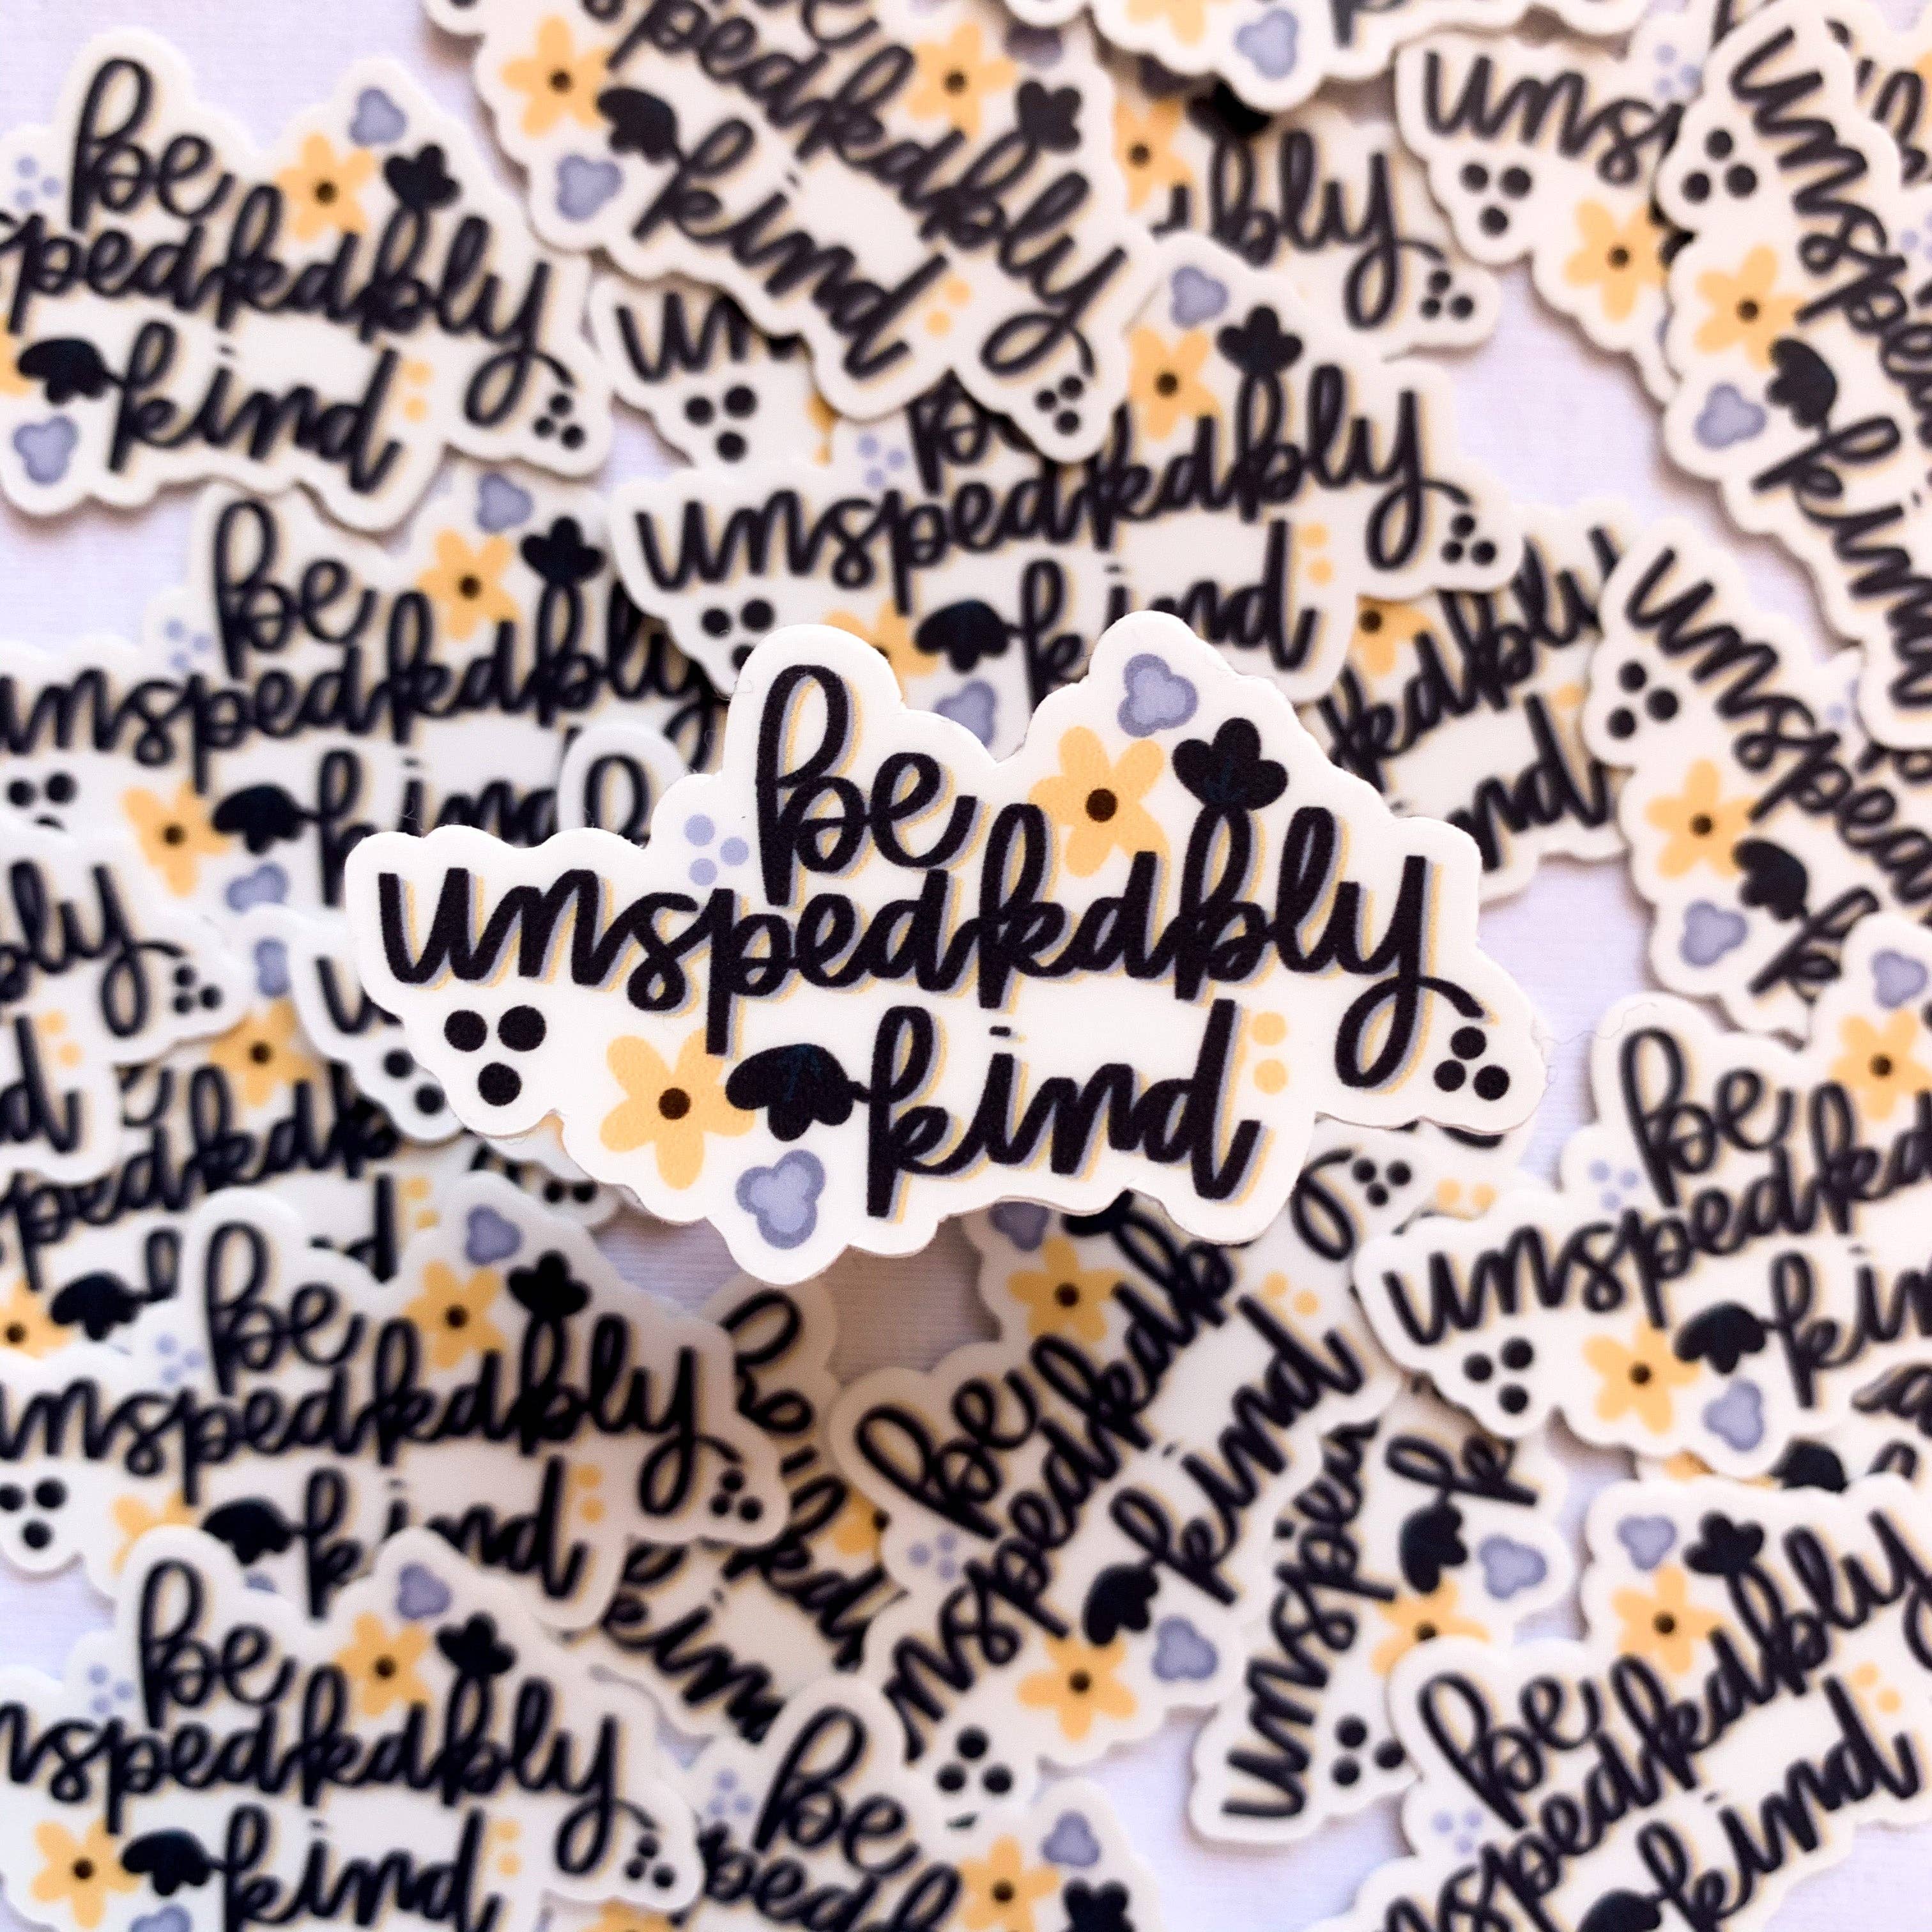 be
unspeakably
kind